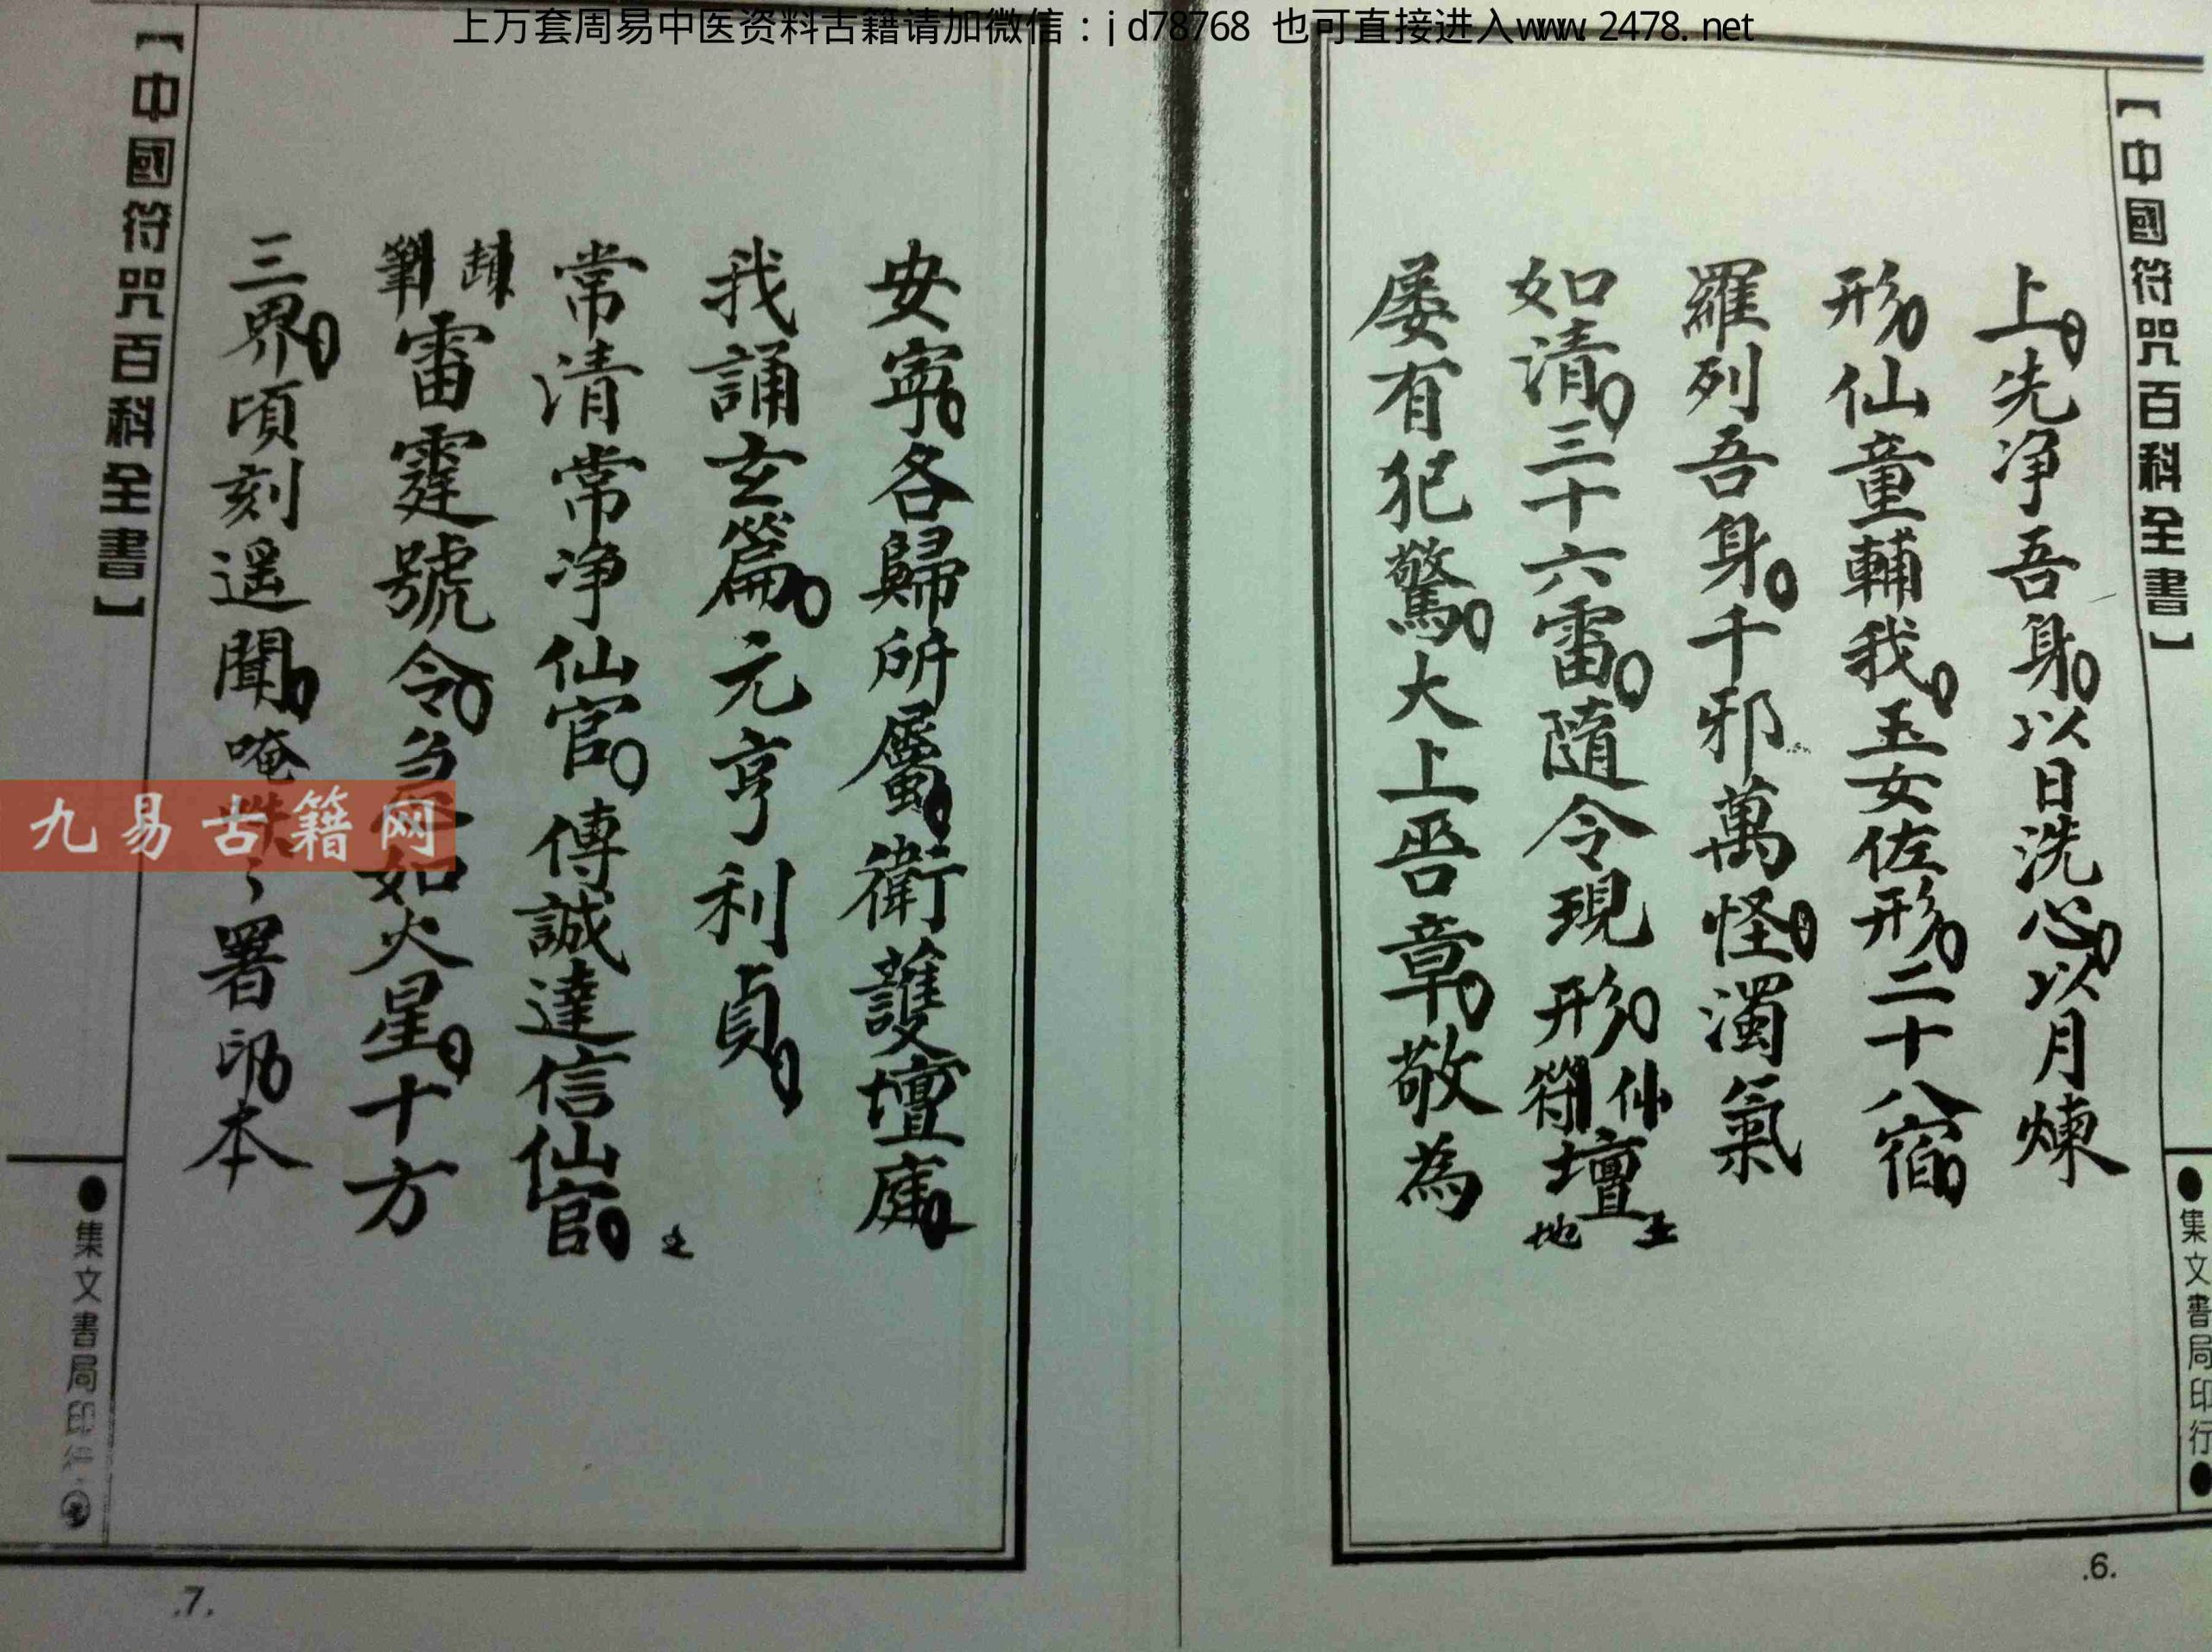 上万套周易中医资料古籍请加微信：jd78768 也可直接进入www.2478.net
【中國符咒百科全書】
上。先净吾身。以日洗心。以月煉
形。仙童輔我。玉女佐形。二十八宿。
羅列吾身。千邪萬怪。濁氣
如清。三十六雷。隨令現形。
仙符
壇
土地
屡有犯驚。大上吾章。敬為
●集文書局印行●
.6.
安寧。各歸所屬。衛護壇庭。
我誦玄篇。元亨利貞。
常清常净仙官。傳誠達信仙官。
筆
雷霆號令。急如火星。十方
三界。頃刻遥聞。唵
署印。本
【中國符咒百科全書】
●集文書局印行
.7.
九易古籍网